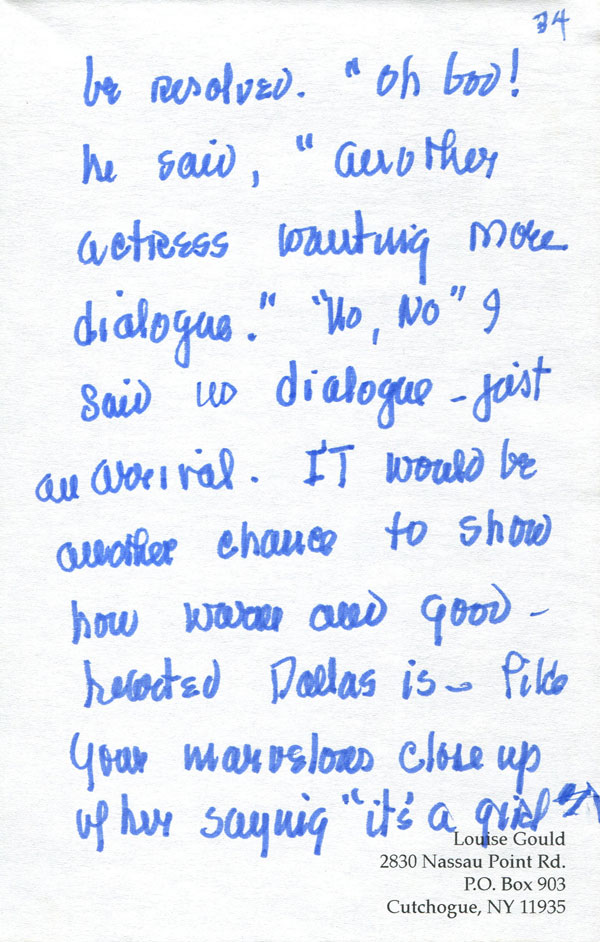 34
be resolved. "Oh boo!
he said, "another
actress wanting more
dialogue." "No, No" I
said no dialogue - just
an arrival. IT would be
another chance to show
how warm and good -
hearted Dallas is - like
your marvelous close up
of her saying "it's a girl"
Louise Gould
2830 Nassau Point Rd.
P.O. Box 903
Cutchogue, NY 11935